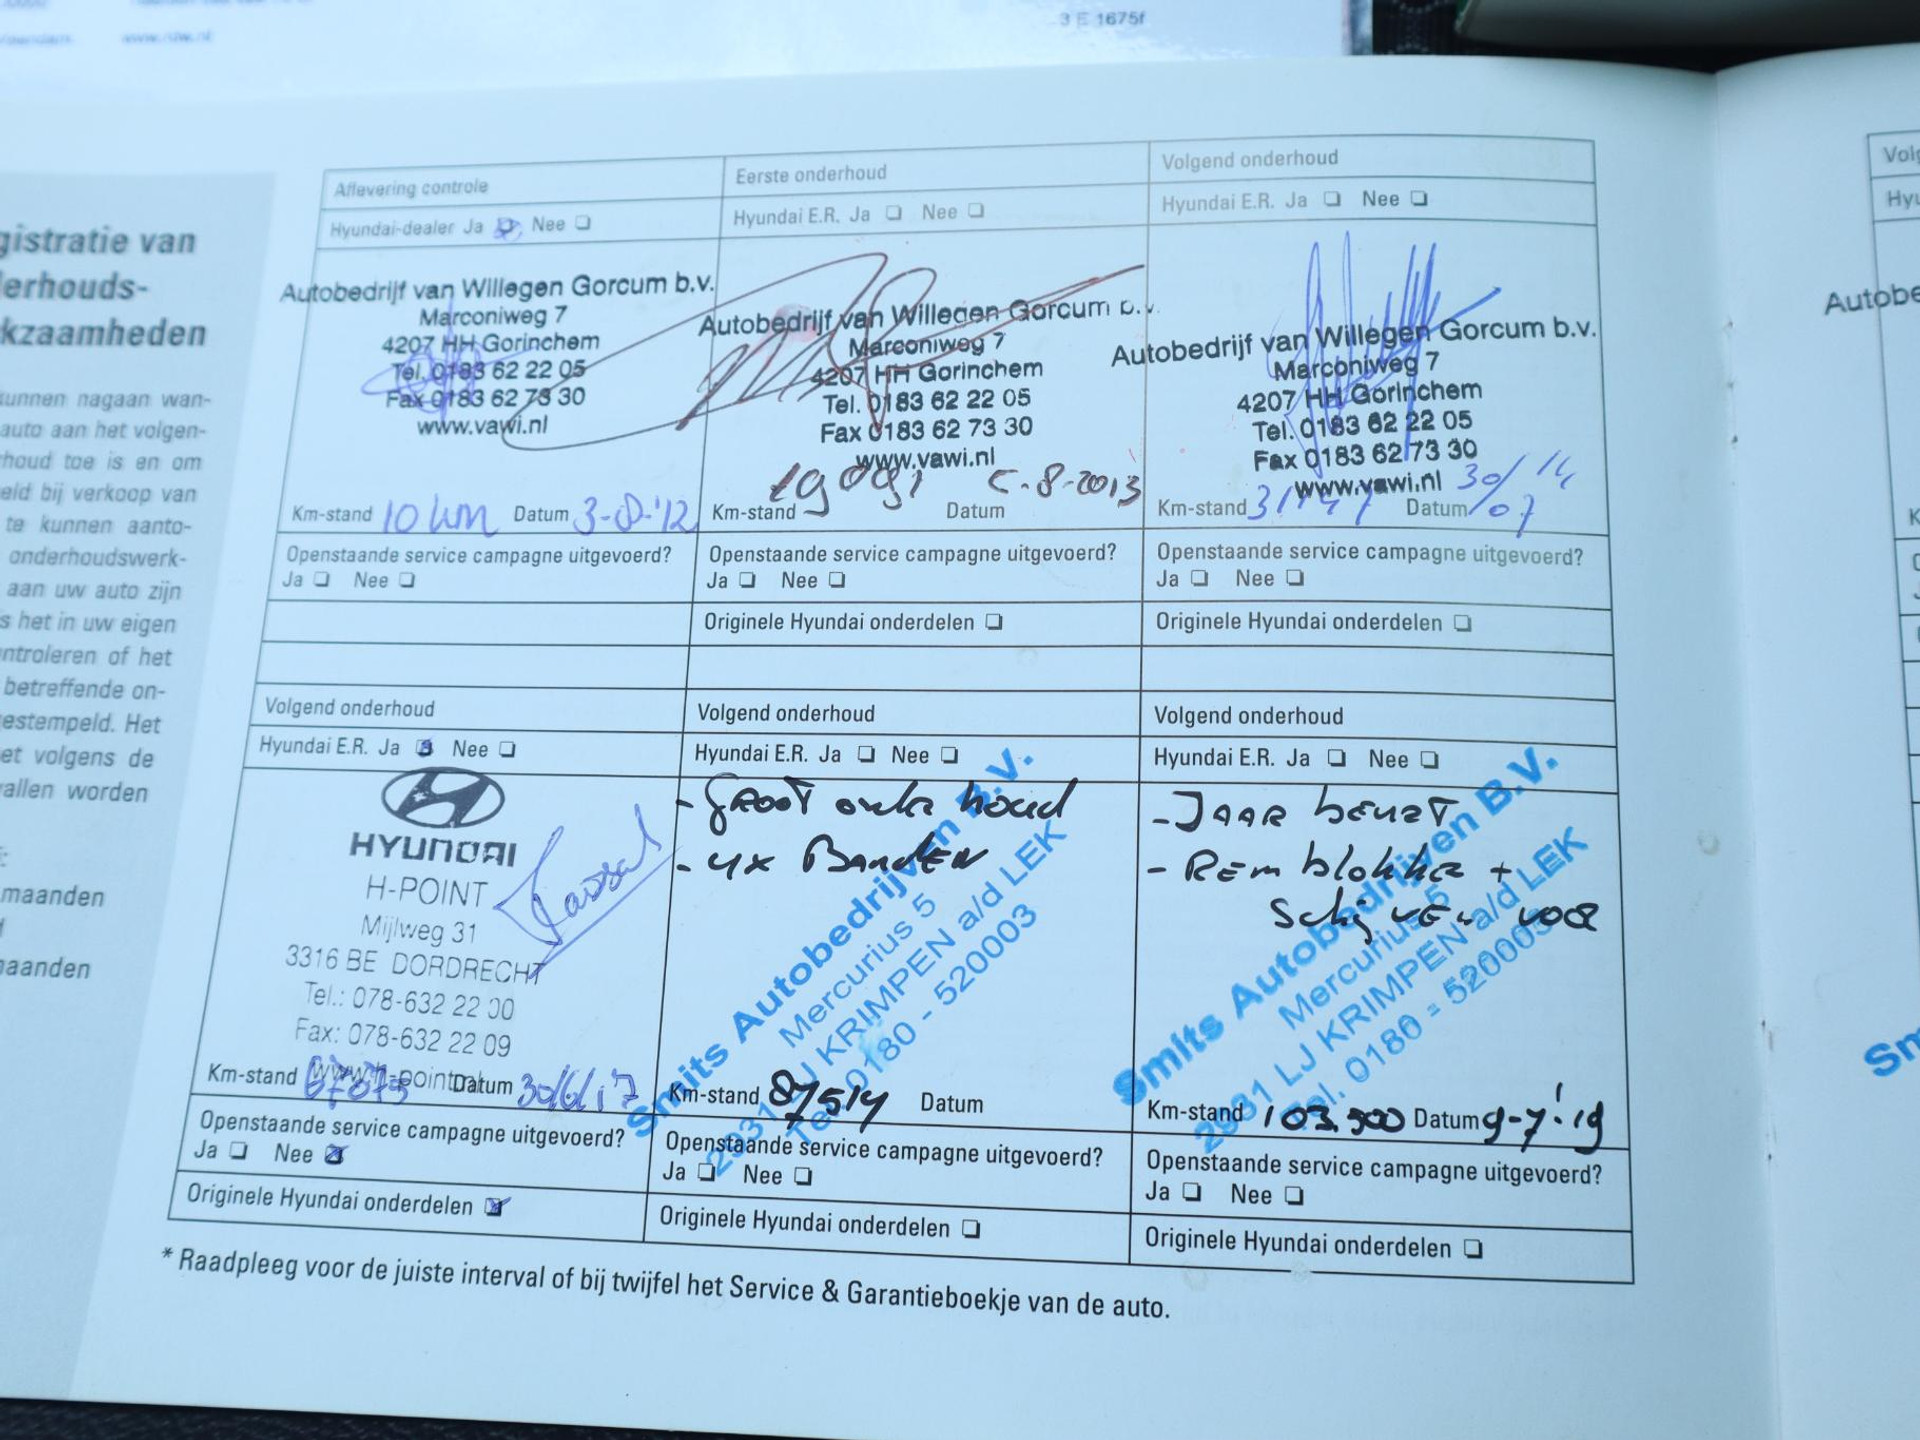 3 E 1675f
www.rdw.nl
gistratie van
lerhouds-
kzaamheden
kunnen nagaan wan-
auto aan het volgen-
rhoud toe is en om
eld bij verkoop van
te kunnen aanto-
onderhoudswerk-
aan uw auto zijn
s het in uw eigen
ntroleren of het
betreffende on-
gestempeld. Het
et volgens de
vallen worden
maanden
naanden
Aflevering controle
Hyundai-dealer Ja Nee
Autobedrijf van Willegen Gorcum b.v.
Marconiweg 7
4207 HH Gorinchem
Tel. 0183 62 22 05
Fax 0183 62 73 30
www.vawi.nl
Km-stand 10 km Datum 3-8-'12
Openstaande service campagne uitgevoerd?
Ja Nee
Eerste onderhoud
Hyundai E.R. Ja Nee
Autobedrijf van Willegen Gorcum b.v.
Marconiweg 7
4207 HH Gorinchem
Tel. 0183 62 22 05
Fax 0183 62 73 30
www.vawi.nl
Km-stand Datum
Openstaande service campagne uitgevoerd?
Ja Nee
Originele Hyundai onderdelen
Volgend onderhoud
Hyundai E.R. Ja Nee
Autobedrijf van Willegen Gorcum b.v.
Marconiweg 7
4207 HH Gorinchem
Tel. 0183 62 22 05
Fax 0183 62 73 30
www.vawi.nl
Km-stand Datum 30/07/14
Openstaande service campagne uitgevoerd?
Ja Nee
Originele Hyundai onderdelen
Volgend onderhoud
Hyundai E.R. Ja Nee
HYUNDAI
H-POINT
Mijlweg 31
3316 BE DORDRECHT
Tel.: 078-632 22 00
Fax: 078-632 22 09
www.h-point.nl
Km-stand 67073 Datum 30/6/17
Openstaande service campagne uitgevoerd?
Ja Nee
Originele Hyundai onderdelen
Volgend onderhoud
Hyundai E.R. Ja Nee
- Groot onderhoud
- 4x Banden
Smits Autobedrijven B.V.
Mercurius 5
2931 LJ KRIMPEN a/d LEK
Tel. 0180 - 520003
Km-stand 87514 Datum
Openstaande service campagne uitgevoerd?
Ja Nee
Originele Hyundai onderdelen
Volgend onderhoud
Hyundai E.R. Ja Nee
- Jaar beurt
- Rem blokken +
Schijven voor
Smits Autobedrijven B.V.
Mercurius 5
2931 LJ KRIMPEN a/d LEK
Tel. 0180 - 520003
Km-stand 103.900 Datum 9-7-'19
Openstaande service campagne uitgevoerd?
Ja Nee
Originele Hyundai onderdelen
* Raadpleeg voor de juiste interval of bij twijfel het Service & Garantieboekje van de auto.
Volg
Hyu
Autobe
Sm